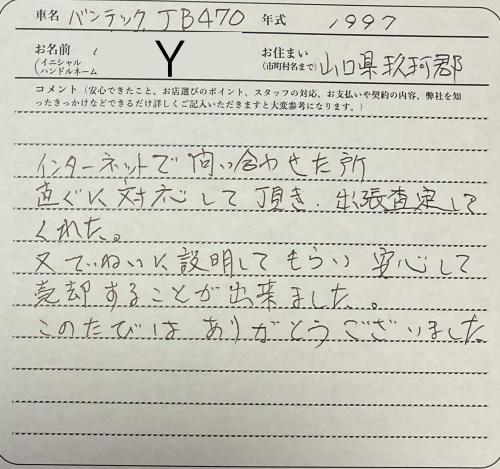 車名 バンテック JB470 年式 1997
お名前 (イニシャル ハンドルネーム Y お住まい (市町村名まで) 山口県玖珂郡
コメント (安心できたこと、お店選びのポイント、スタッフの対応、お支払いや契約の内容、弊社を知
ったきっかけなどできるだけ詳しくご記入いただきますと大変参考になります。)
インターネットで問い合わせた所
直ぐに対応して頂き、出張査定して
くれた。
又ていねいに説明してもらい 安心して
売却することが出来ました。
このたびは ありがとうございました